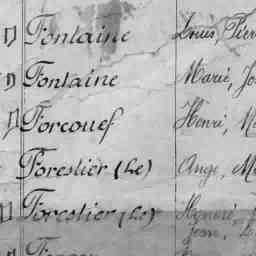 Fontaine Louis, Pier
Fontaine Marie, Jo
Forcouef Henri, M
Forestier (Le) Ange, M
Forestier (Le) Honoré,
Jean,